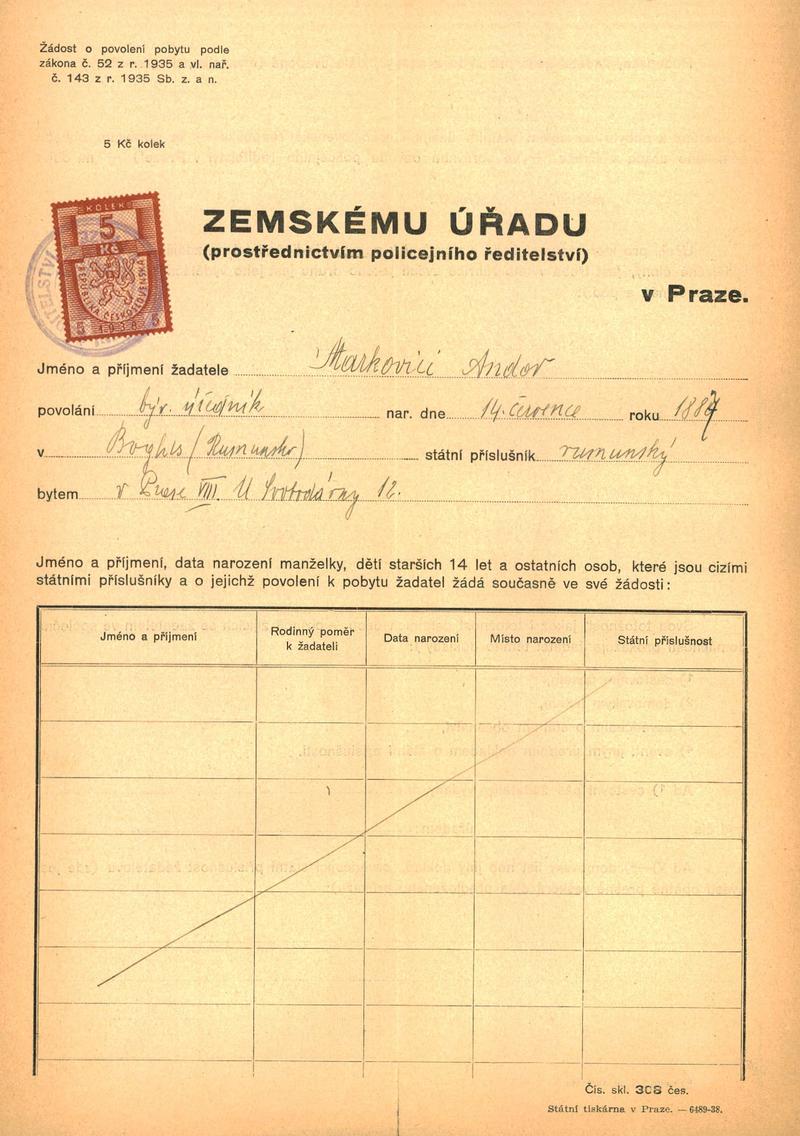 Žádost o povolení pobytu podle
zákona č. 52 z r. 1935 a vl. nař.
č. 143 z r. 1935 Sb. z. a n.
5 Kč kolek
KOLEK
5
Kč
REPUBLIKA ČESKOSLOVENSKÁ
5 1938 5
ZEMSKÉMU ÚŘADU
(prostřednictvím policejního ředitelství)
v Praze.
Jméno a příjmení žadatele Markovici Andor
povolání býv. úředník nar. dne 14. července roku 1887
v (Rumunsko) státní příslušník rumunský
bytem v Praze VIII. U Svobodárny 12.
Jméno a příjmení, data narození manželky, dětí starších 14 let a ostatních osob, které jsou cizími
státními příslušníky a o jejichž povolení k pobytu žadatel žádá současně ve své žádosti:
Jméno a příjmení Rodinný poměr k žadateli Data narození Místo narození Státní příslušnost
Čís. skl. 308 čes.
Státní tiskárna v Praze. — 6489-38.